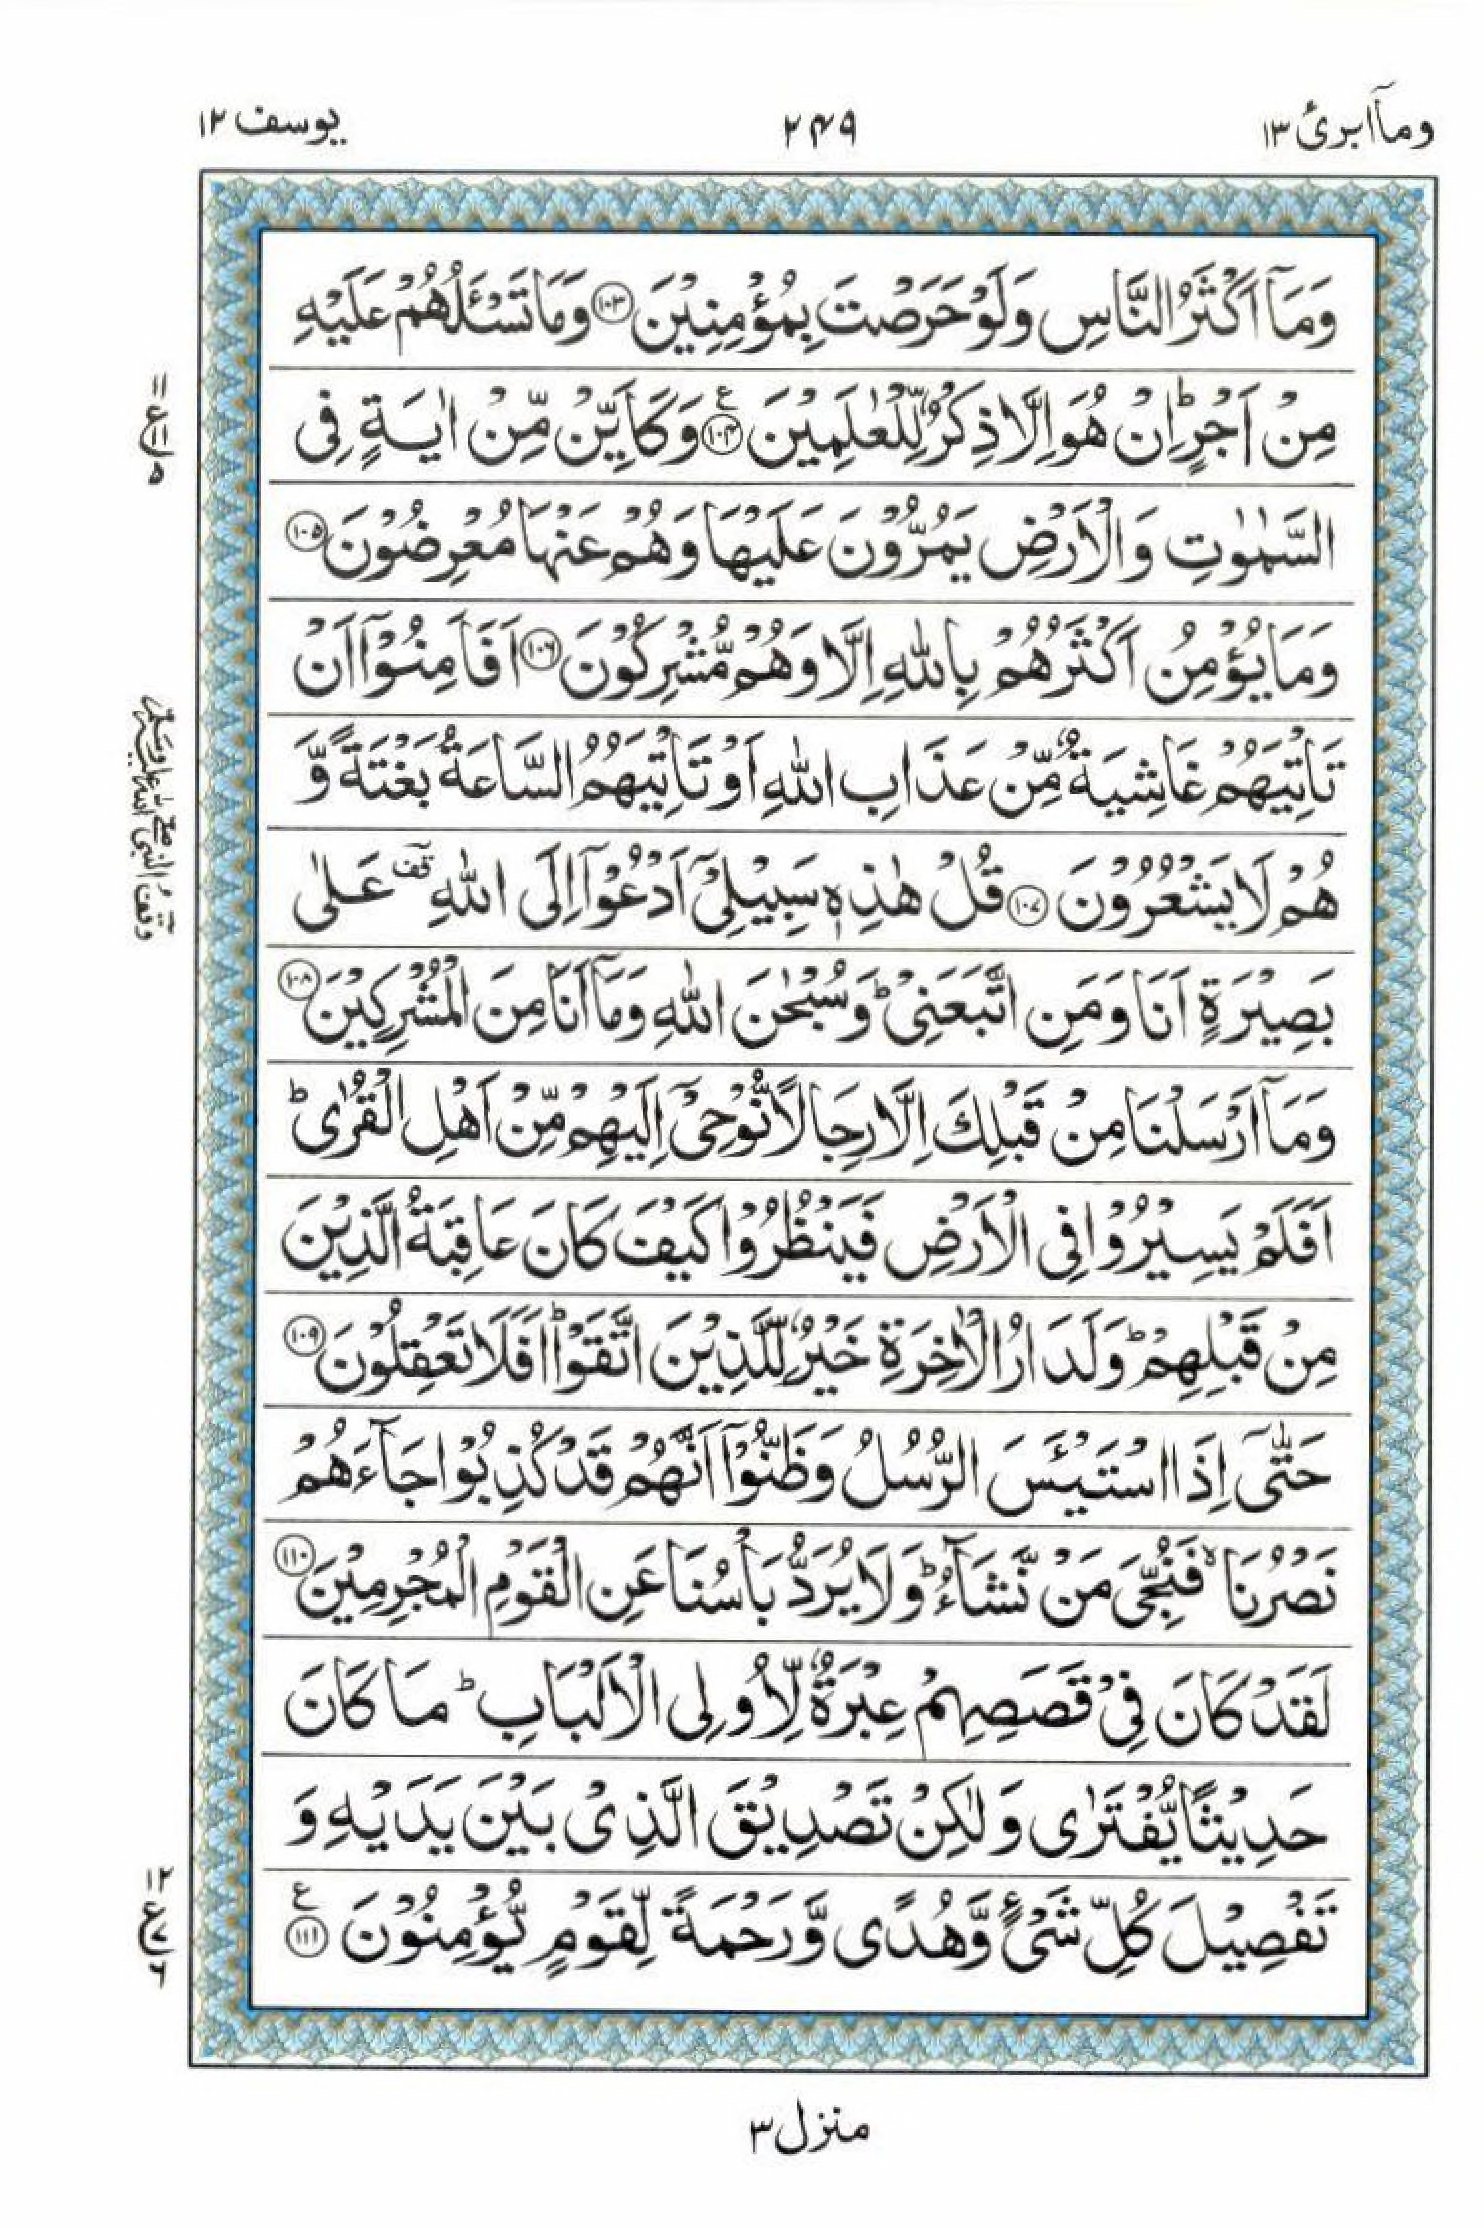 وماۤ ابرئ ١٣
٢٤٩
يوسف ١٢
وَمَاۤ اَكْثَرُ النَّاسِ وَلَوْ حَرَصْتَ بِمُؤْمِنِيْنَ ﴿١٠٣﴾ وَمَا تَسْـَٔلُهُمْ عَلَيْهِ
مِنْ اَجْرٍ ؕ اِنْ هُوَ اِلَّا ذِكْرٌ لِّلْعٰلَمِيْنَ ﴿١٠٤﴾ ع وَكَاَيِّنْ مِّنْ اٰيَةٍ فِى
السَّمٰوٰتِ وَالْاَرْضِ يَمُرُّوْنَ عَلَيْهَا وَهُمْ عَنْهَا مُعْرِضُوْنَ ﴿١٠٥﴾
وَمَا يُؤْمِنُ اَكْثَرُهُمْ بِاللّٰهِ اِلَّا وَهُمْ مُّشْرِكُوْنَ ﴿١٠٦﴾ اَفَاَمِنُوْۤا اَنْ
تَاْتِيَهُمْ غَاشِيَةٌ مِّنْ عَذَابِ اللّٰهِ اَوْ تَاْتِيَهُمُ السَّاعَةُ بَغْتَةً وَّ
هُمْ لَا يَشْعُرُوْنَ ﴿١٠٧﴾ قُلْ هٰذِهٖ سَبِيْلِىْۤ اَدْعُوْۤا اِلَى اللّٰهِ قف عَلٰى
بَصِيْرَةٍ اَنَا وَمَنِ اتَّبَعَنِىْ ؕ وَسُبْحٰنَ اللّٰهِ وَمَاۤ اَنَا مِنَ الْمُشْرِكِيْنَ ﴿١٠٨﴾
وَمَاۤ اَرْسَلْنَا مِنْ قَبْلِكَ اِلَّا رِجَالًا نُّوْحِىْۤ اِلَيْهِمْ مِّنْ اَهْلِ الْقُرٰى ؕ
اَفَلَمْ يَسِيْرُوْا فِى الْاَرْضِ فَيَنْظُرُوْا كَيْفَ كَانَ عَاقِبَةُ الَّذِيْنَ
مِنْ قَبْلِهِمْ ؕ وَلَدَارُ الْاٰخِرَةِ خَيْرٌ لِّلَّذِيْنَ اتَّقَوْا ؕ اَفَلَا تَعْقِلُوْنَ ﴿١٠٩﴾
حَتّٰۤى اِذَا اسْتَيْـَٔسَ الرُّسُلُ وَظَنُّوْۤا اَنَّهُمْ قَدْ كُذِبُوْا جَآءَهُمْ
نَصْرُنَا ۙ فَنُجِّىَ مَنْ نَّشَآءُ ؕ وَلَا يُرَدُّ بَاْسُنَا عَنِ الْقَوْمِ الْمُجْرِمِيْنَ ﴿١١٠﴾
لَقَدْ كَانَ فِىْ قَصَصِهِمْ عِبْرَةٌ لِّاُولِى الْاَلْبَابِ ؕ مَا كَانَ
حَدِيْثًا يُّفْتَرٰى وَلٰكِنْ تَصْدِيْقَ الَّذِىْ بَيْنَ يَدَيْهِ وَ
تَفْصِيْلَ كُلِّ شَىْءٍ وَّهُدًى وَّرَحْمَةً لِّقَوْمٍ يُّؤْمِنُوْنَ ﴿١١١﴾ ع
١١
ع ١١
٥
وقف النبى صلى الله عليه وسلم
١٢
ع ٧
٦
منزل ٣